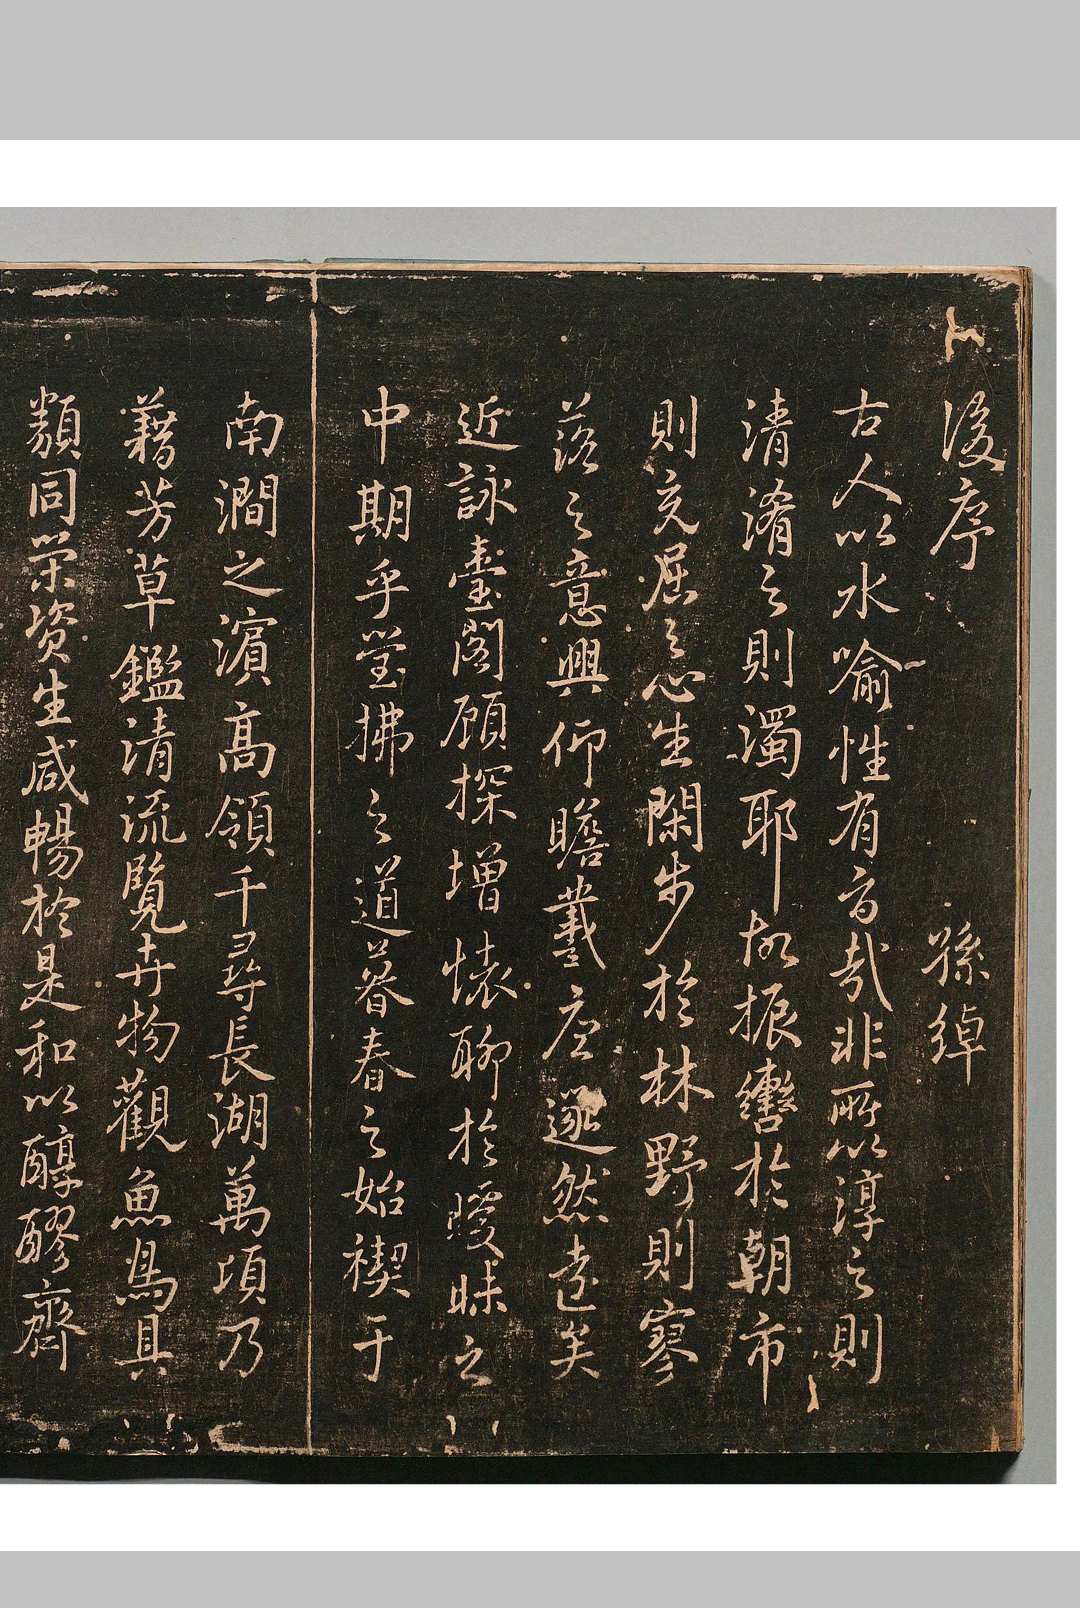 後序 孫綽
古人以水喻性有旨哉非所以淳之則
清淆之則濁耶故振轡於朝市
則充屈之心生閑步於林野則寥
落之意興仰瞻羲唐邈然遠矣
近詠臺閣顧探增懷聊於曖昧之
中期乎瑩拂之道暮春之始禊于
南澗之濱高領千尋長湖萬頃乃
藉芳草鑑清流覽卉物觀魚鳥具
類同榮資生咸暢於是和以醇醪齊